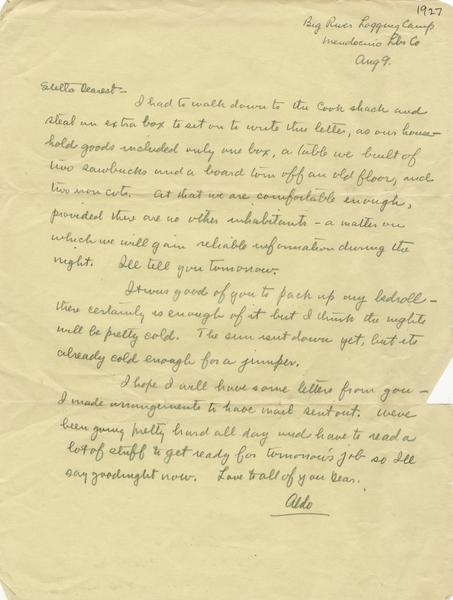 1927
Big River Logging Camp
Mendocino Lbr Co
Aug 9.
Estella Dearest -
I had to walk down to the Cook shack and
steal an extra box to sit on to write this letter, as our house-
hold goods included only one box, a table we built of
two sawbucks and a board torn off an old floor, and
two iron cots. At that we are comfortable enough,
provided there are no other inhabitants - a matter on
which we will gain reliable information during the
night. I'll tell you tomorrow.
It was good of you to pack up my bedroll -
there certainly is enough of it but I think the nights
will be pretty cold. The sun isn't down yet, but its
already cold enough for a jumper.
I hope I will have some letters from you -
I made arrangements to have mail sent out. We've
been going pretty hard all day and have to read a
lot of stuff to get ready for tomorrow's job so I'll
say goodnight now. Love to all of you Dear.
Aldo